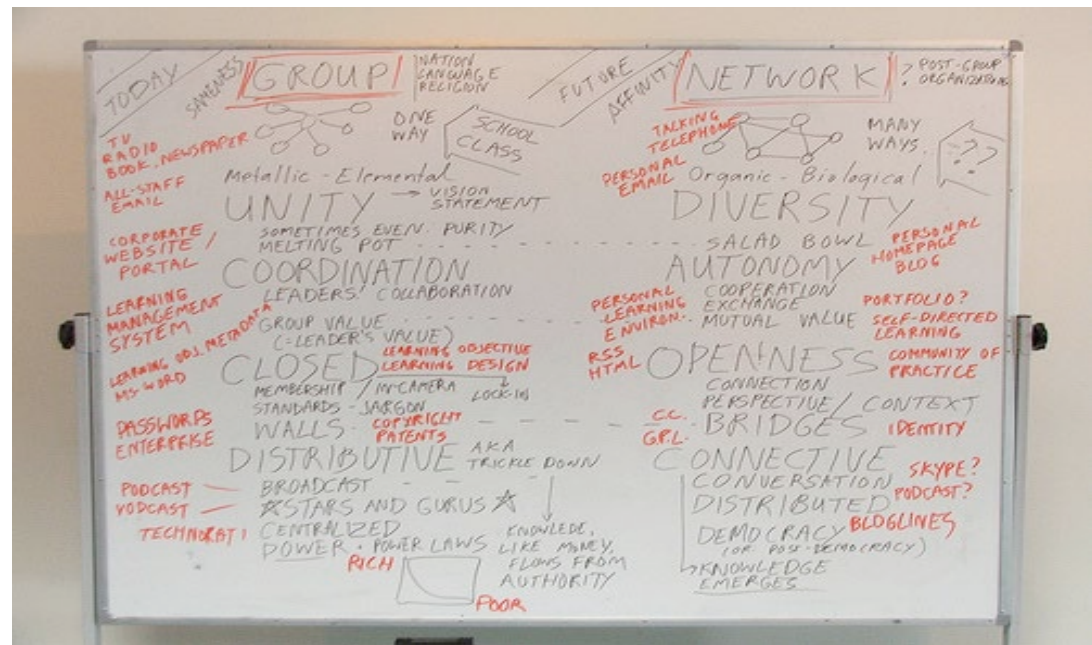 TODAY
SAMENESS
GROUP
NATION
LANGUAGE
RELIGION
ONE
WAY
SCHOOL
CLASS
TV
RADIO
BOOK, NEWSPAPER
ALL-STAFF
EMAIL
Metallic - Elemental
UNITY → VISION
STATEMENT
SOMETIMES EVEN PURITY
MELTING POT
CORPORATE
WEBSITE /
PORTAL
COORDINATION
LEADERS' COLLABORATION
LEARNING
MANAGEMENT
SYSTEM
GROUP VALUE
(=LEADER'S VALUE)
LEARNING OBJ. METADATA
MS-WORD
CLOSED
LEARNING OBJECTIVE
LEARNING DESIGN
LOCK-IN
MEMBERSHIP / IN-CAMERA
STANDARDS - JARGON
WALLS
COPYRIGHT
PATENTS
PASSWORDS
ENTERPRISE
DISTRIBUTIVE AKA
TRICKLE DOWN
PODCAST
VODCAST
TECHNORATI
BROADCAST
STARS AND GURUS
CENTRALIZED
POWER · POWER LAWS
RICH
POOR
KNOWLEDE,
LIKE MONEY,
FLOWS FROM
AUTHORITY
FUTURE
AFFINITY
NETWORK
? POST-GROUP
ORGANIZATIONS
TALKING
TELEPHONE
MANY
WAYS.
??
PERSONAL
EMAIL
Organic - Biological
DIVERSITY
SALAD BOWL
PERSONAL
HOMEPAGE
BLOG
AUTONOMY
COOPERATION
EXCHANGE
MUTUAL VALUE
PERSONAL
LEARNING
ENVIRON.
PORTFOLIO?
SELF-DIRECTED
LEARNING
RSS
HTML
OPENNESS
COMMUNITY OF
PRACTICE
CONNECTION
PERSPECTIVE / CONTEXT
BRIDGES
C.C.
G.P.L.
IDENTITY
CONNECTIVE
CONVERSATION
SKYPE?
DISTRIBUTED
PODCAST?
DEMOCRACY
BLOGLINES
(OR POST-DEMOCRACY)
KNOWLEDGE
EMERGES